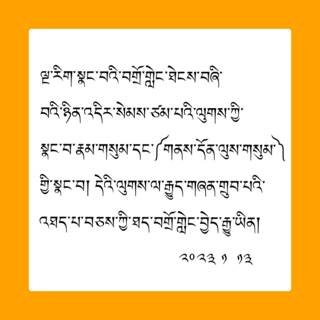 ལྔ་རིག་སྣང་བའི་བགྲོ་གླེང་ཐེངས་བཞི་
བའི་ཉིན་འདིར་སེམས་ཙམ་པའི་ལུགས་ཀྱི་
སྣང་བ་རྣམ་གསུམ་དང་༼གནས་དོན་ལུས་གསུམ་༽
གྱི་སྣང་བ། དེའི་ལུགས་ལ་རྒྱུད་གཞན་གྲུབ་པའི་
འཐད་པ་བཅས་ཀྱི་ཐད་བགྲོ་གླེང་བྱེད་རྒྱུ་ཡིན།
༢༠༢༣ ༡ ༡༣